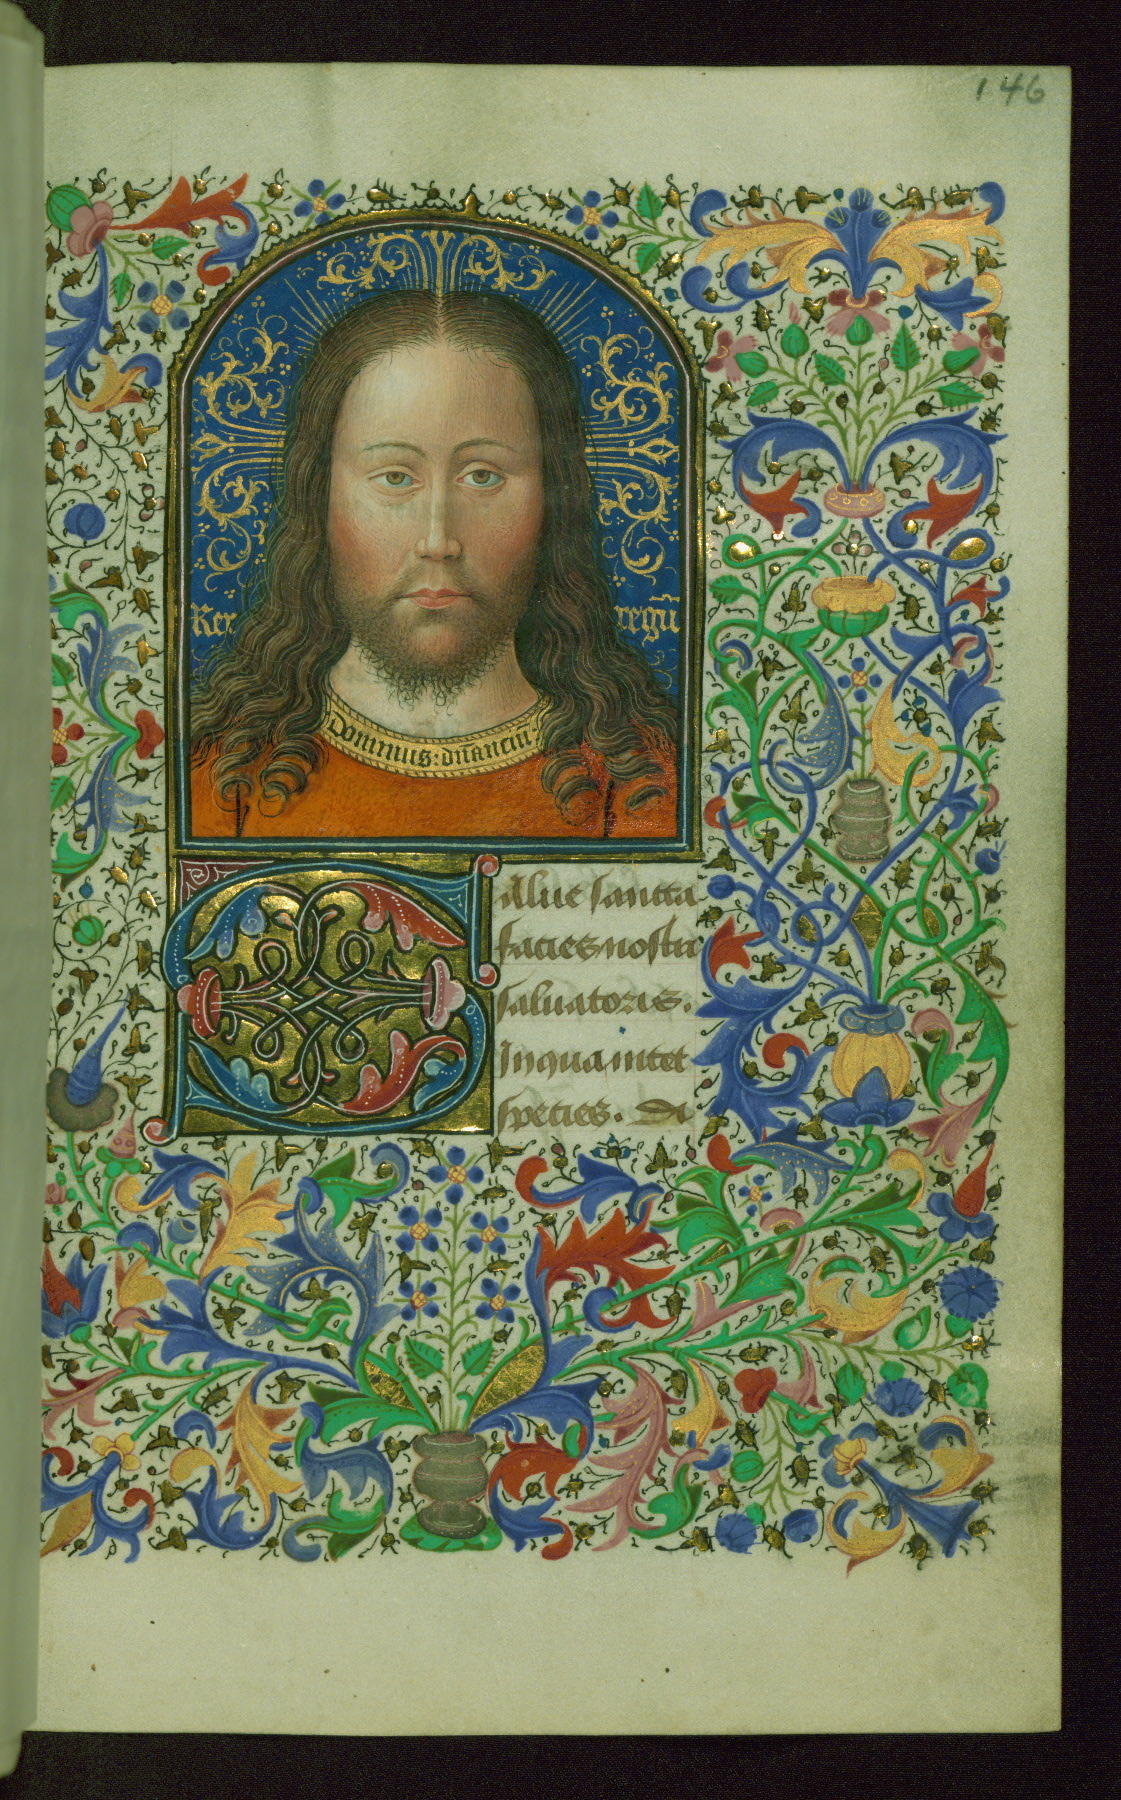 146
Rex regū
Dominus: dn̄anciū
Salue sancta
facies nostri
saluatoris.
In qua nitet
species. Di